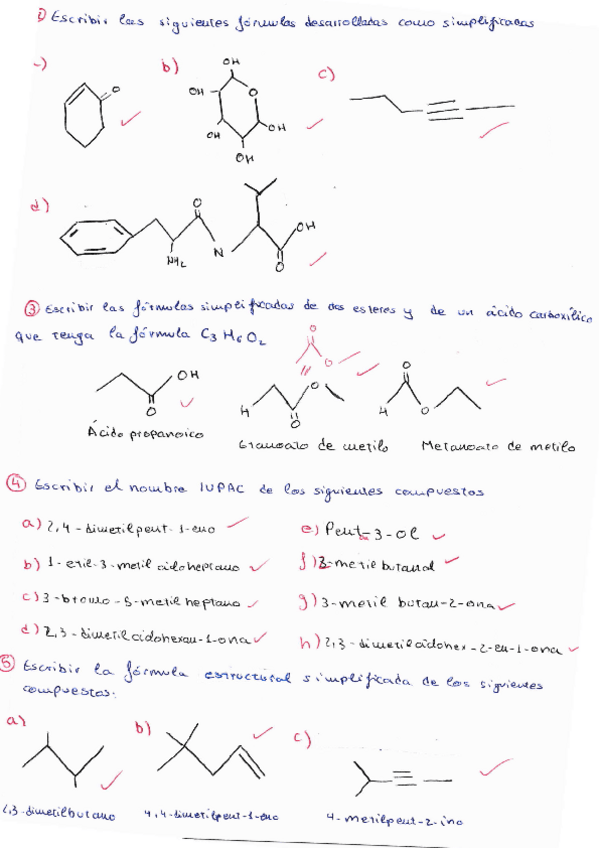 ① Escribir las siguientes fórmulas desarrolladas como simplificadas
-) b) c)
O
OH
OH O
OH OH
OH
d)
O OH
NH₂ N O
③ Escribir las fórmulas simplificadas de dos esteres y de un ácido carboxílico
que tenga la fórmula C₃H₆O₂
O
O
OH O O
O H O H O
Ácido propanoico Etanoato de metilo Metanoato de metilo
④ Escribir el nombre IUPAC de los siguientes compuestos
a) 2,4-dimetilpent-1-eno e) Pent-3-ol
b) 1-etil-3-metil cicloheptano f) 3-metilbutanal
c) 3-bromo-5-metil heptano g) 3-metil butan-2-ona
d) 2,3-dimetilciclohexan-1-ona h) 2,3-dimetilciclohex-2-en-1-ona
⑤ Escribir la fórmula estructural simplificada de los siguientes
compuestos:
a) b) c)
2,3-dimetilbutano 4,4-dimetilpent-1-eno 4-metilpent-2-ino